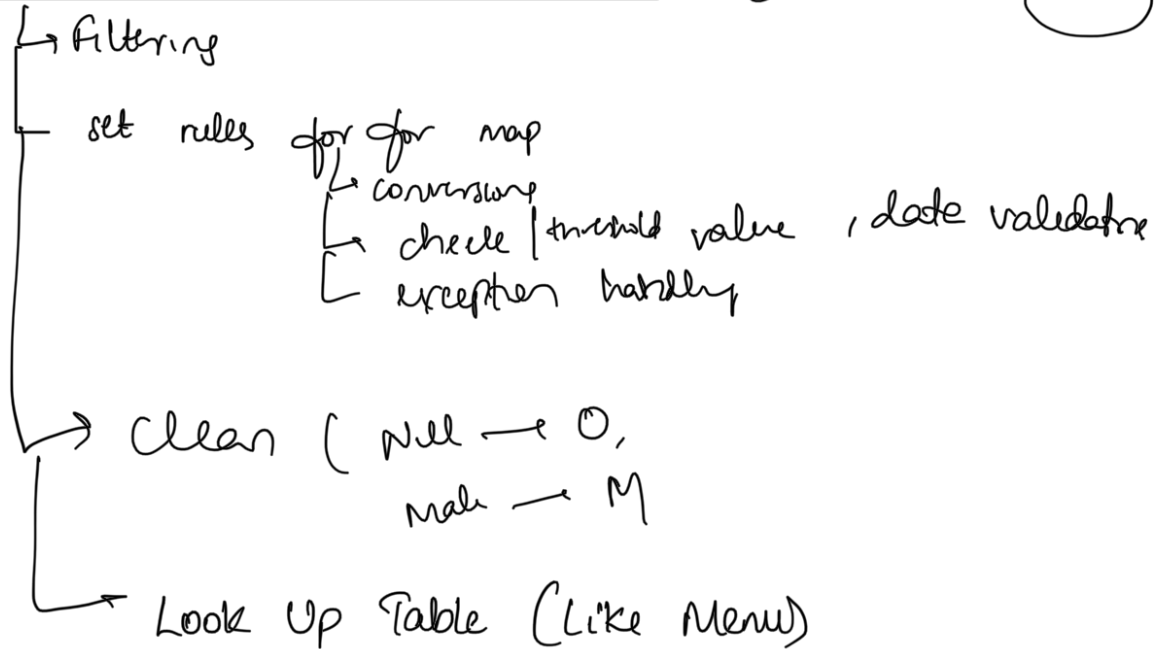 Filtering
set rules for for map
conversions
check / threshold value , date validation
exception handling
Clean ( Null → 0,
Male → M
Look Up Table (Like Menu)